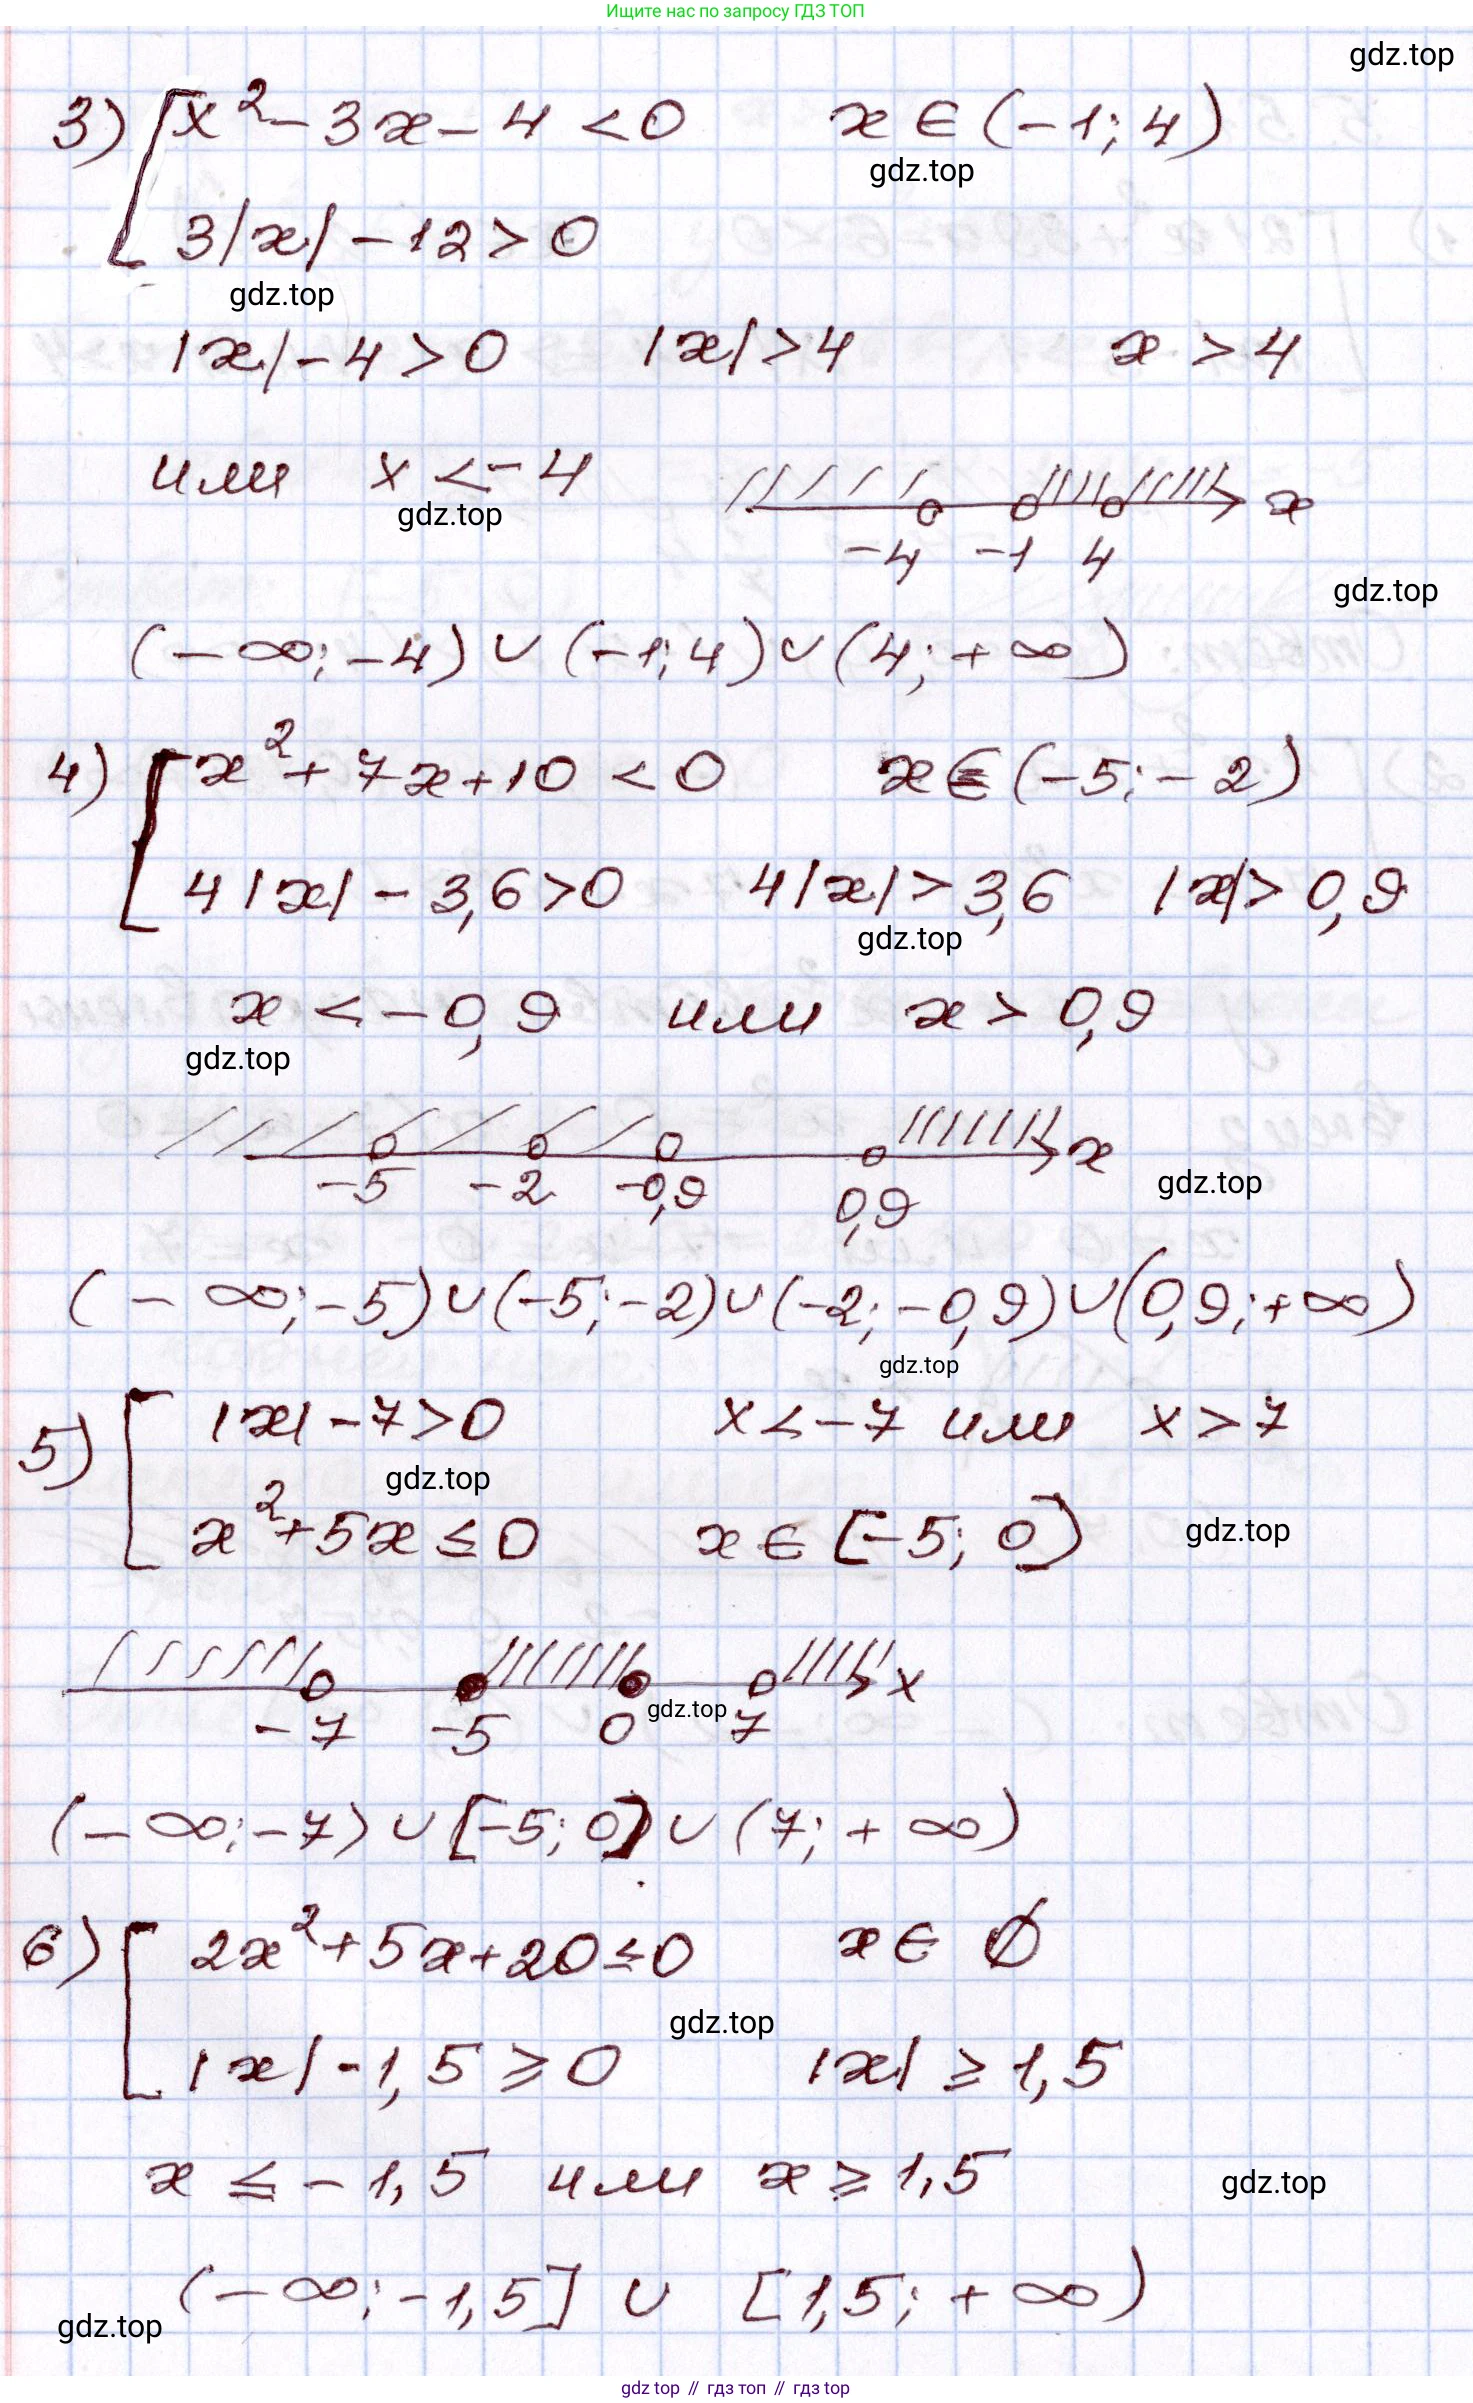 Ищите нас по запросу ГДЗ ТОП
gdz.top
3) [ x² - 3x - 4 < 0 x ∈ (-1; 4)
gdz.top
3|x| - 12 > 0
gdz.top
|x| - 4 > 0 |x| > 4 x > 4
или x < -4
gdz.top
x
-4 -1 4
gdz.top
(-∞; -4) ∪ (-1; 4) ∪ (4; +∞)
4) [ x² + 7x + 10 < 0 x ∈ (-5; -2)
4|x| - 3,6 > 0 4|x| > 3,6 |x| > 0,9
gdz.top
x < -0,9 или x > 0,9
gdz.top
x
-5 -2 -0,9 0,9
gdz.top
(-∞; -5) ∪ (-5; -2) ∪ (-2; -0,9) ∪ (0,9; +∞)
gdz.top
5) [ |x| - 7 > 0 x < -7 или x > 7
gdz.top
x² + 5x ≤ 0 x ∈ [-5; 0]
gdz.top
x
gdz.top
-7 -5 0 7
(-∞; -7) ∪ [-5; 0] ∪ (7; +∞)
6) [ 2x² + 5x + 20 ≤ 0 x ∈ ∅
gdz.top
|x| - 1,5 ≥ 0 |x| ≥ 1,5
x ≤ -1,5 или x ≥ 1,5
gdz.top
(-∞; -1,5] ∪ [1,5; +∞)
gdz.top
gdz top // гдз топ // гдз top